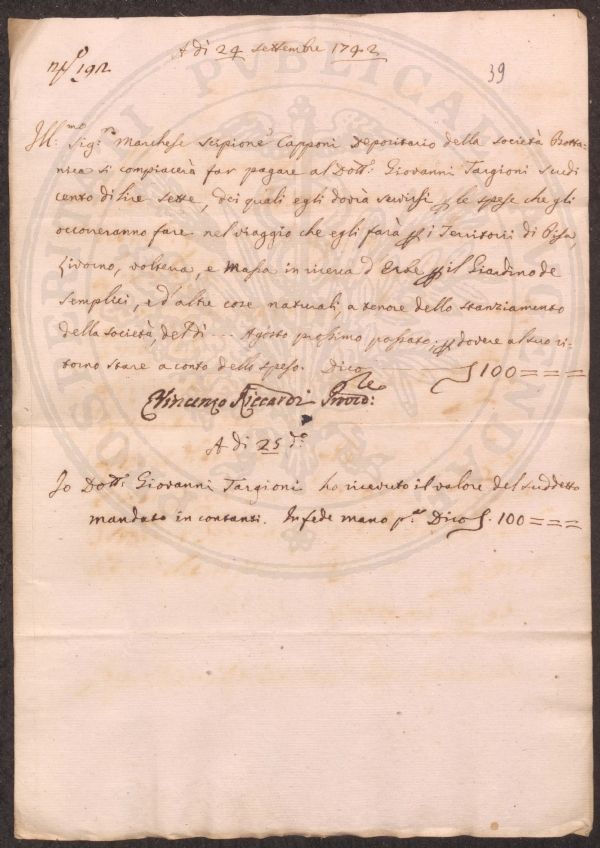 A dì 24 settembre 1742
n.º 192
39
Ill:mo Sig:r Marchese Scipione Capponi Depositario della società Botta=
nica si compiacerà far pagare al Dott: Giovanni Targioni scudi
cento di lire sette, dei quali egli dovrà servirsi p le spese che gli
occorreranno fare nel viaggio che egli farà p i Territorii di Pisa,
Livorno, Volterra, e Massa in ricerca d Erbe p il Giardino de
Semplici, e d'altre cose naturali, a tenore dello stanziamento
della società, de dì --- Agosto prossimo passato; p dovere al suo ri=
torno stare a conto dello speso. Dico 100 = = =
Vincenzio Riccardi Provre:
A dì 25 do
Io Dott: Giovanni Targioni ho ricevuto il valore del suddetto
mandato in contanti. In fede mano pa Dico 100 = = =